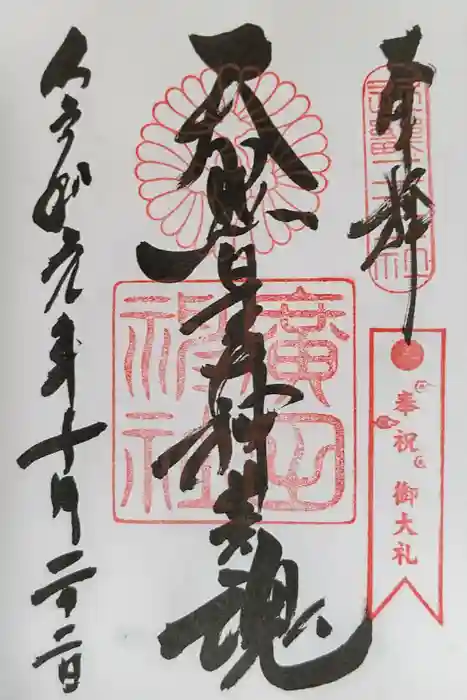 奉拝
奉祝 御大礼
天照皇大神荒魂
廣田
神社
令和元年十月二十二日